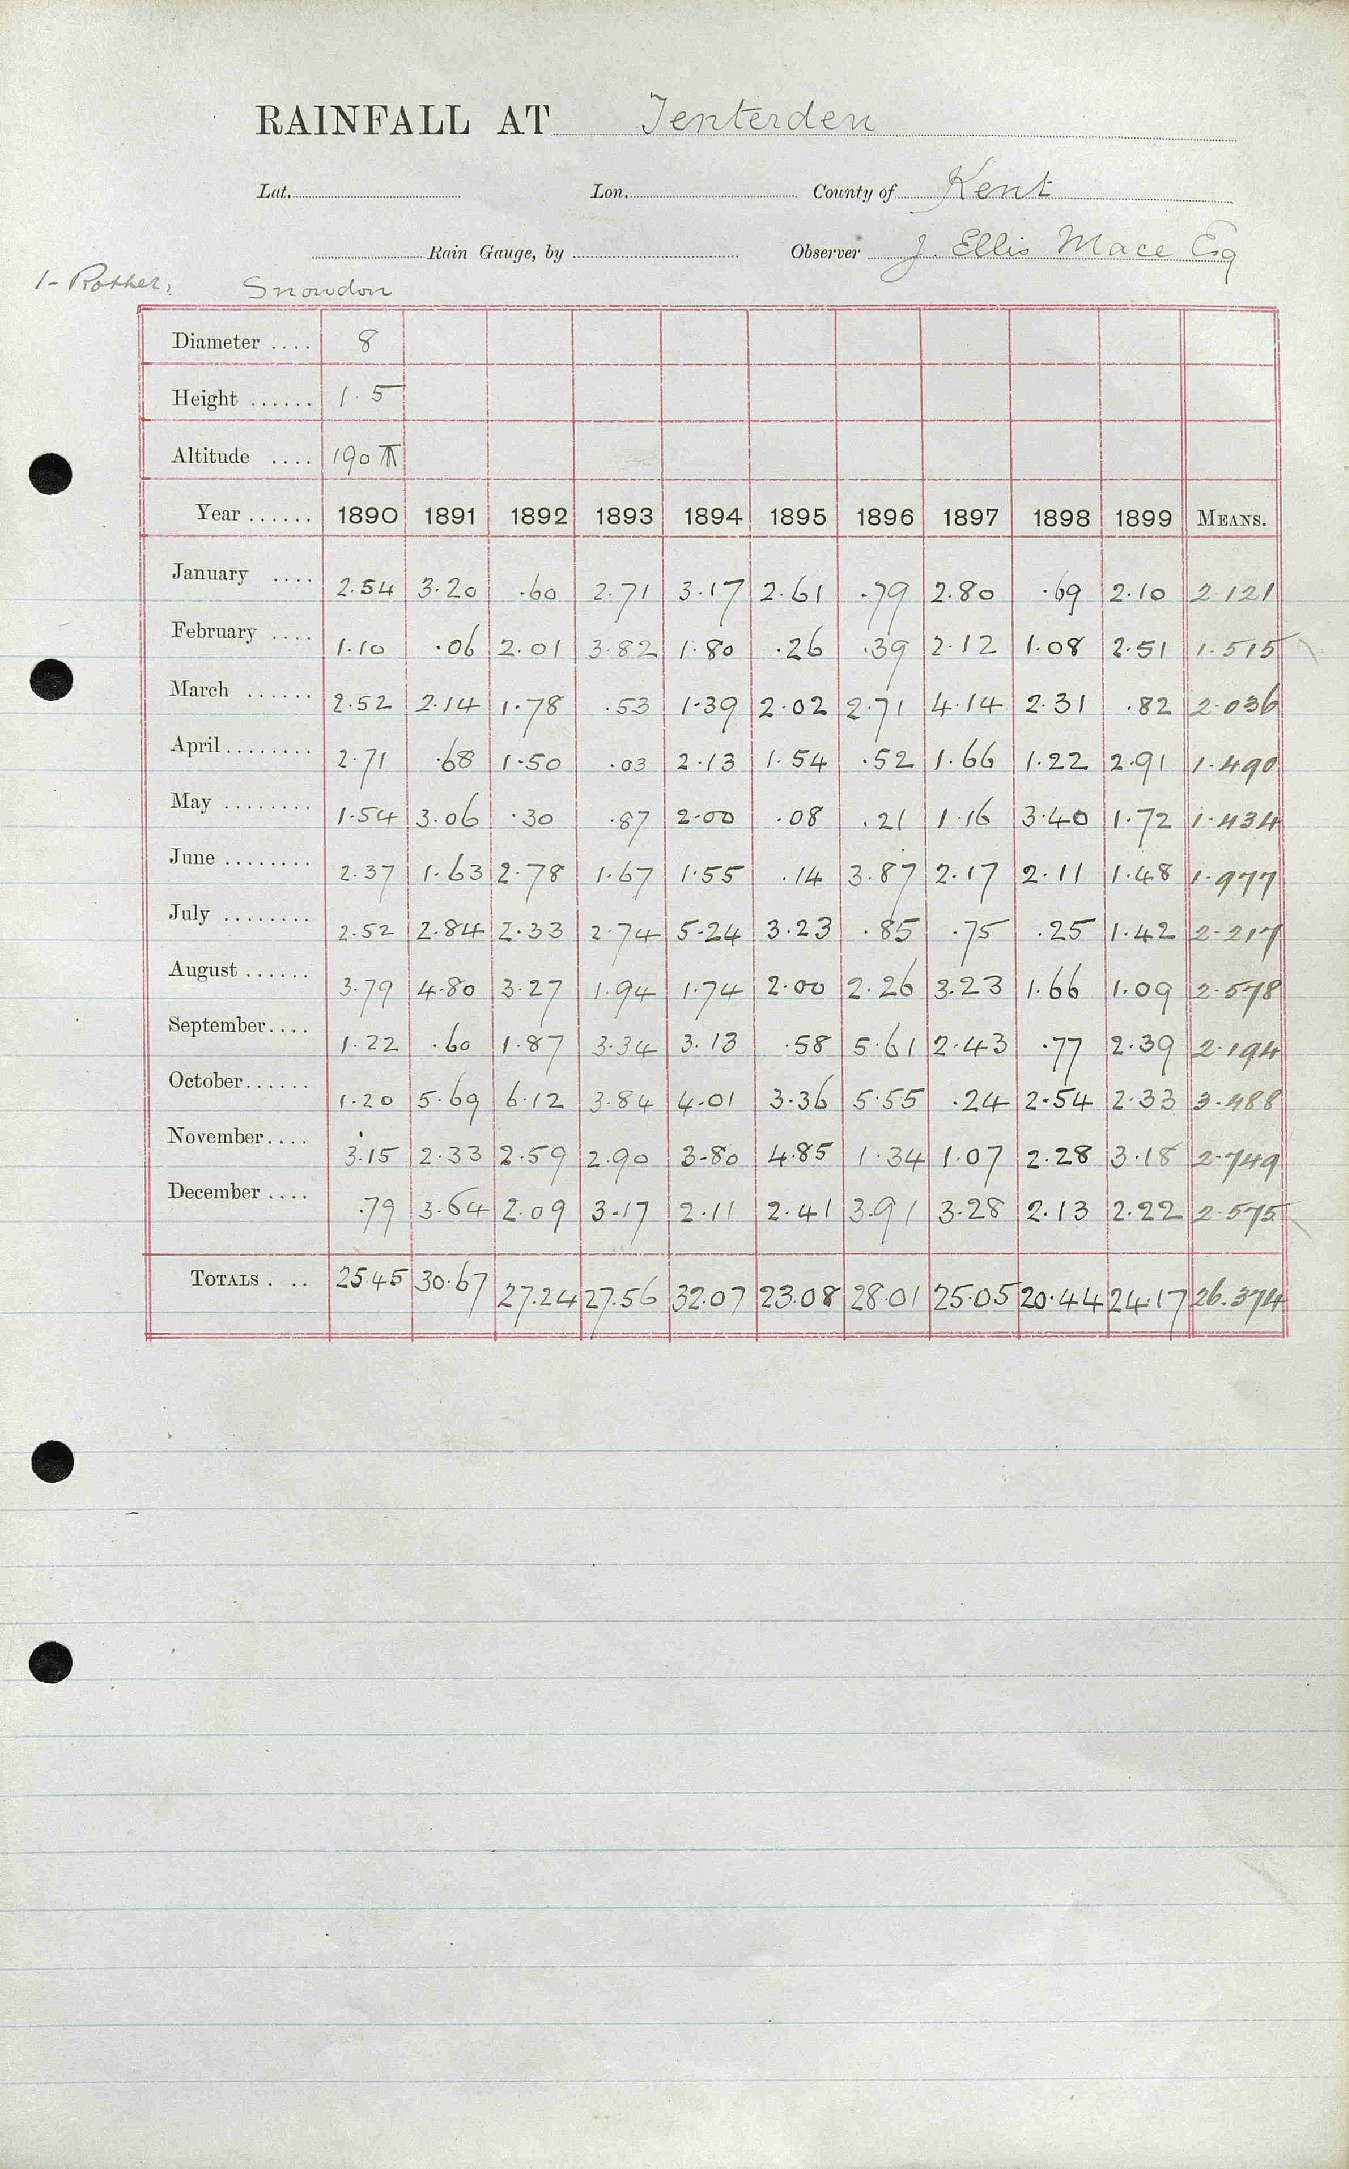 RAINFALL AT Tenterden
Lat. Lon. County of Kent
Rain Gauge, by Observer J. Ellis Mace Esq
1- Rother. Snowdon
Diameter .... 8
Height ...... 1.5
Altitude .... 190
Year ...... 1890 1891 1892 1893 1894 1895 1896 1897 1898 1899 MEANS.
January .... 2.54 3.20 .60 2.71 3.17 2.61 .79 2.80 .69 2.10 2.121
February .... 1.10 .06 2.01 3.82 1.80 .26 .39 2.12 1.08 2.51 1.515
March ...... 2.52 2.14 1.78 .53 1.39 2.02 2.71 4.14 2.31 .82 2.036
April ........ 2.71 .68 1.50 .03 2.13 1.54 .52 1.66 1.22 2.91 1.490
May ........ 1.54 3.06 .30 .87 2.00 .08 .21 1.16 3.40 1.72 1.434
June ........ 2.37 1.63 2.78 1.67 1.55 .14 3.87 2.17 2.11 1.48 1.977
July ........ 2.52 2.84 2.33 2.74 5.24 3.23 .85 .75 .25 1.42 2.217
August ...... 3.79 4.80 3.27 1.94 1.74 2.00 2.26 3.23 1.66 1.09 2.578
September .... 1.22 .60 1.87 3.34 3.13 .58 5.61 2.43 .77 2.39 2.194
October ...... 1.20 5.69 6.12 3.84 4.01 3.36 5.55 .24 2.54 2.33 3.488
November .... 3.15 2.33 2.59 2.90 3.80 4.85 1.34 1.07 2.28 3.18 2.749
December .... .79 3.64 2.09 3.17 2.11 2.41 3.91 3.28 2.13 2.22 2.575
TOTALS . .. 25.45 30.67 27.24 27.56 32.07 23.08 28.01 25.05 20.44 24.17 26.374